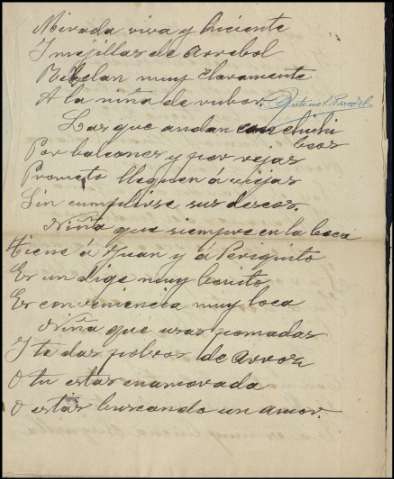 Mirada viva y luciente
I mejillas de arrebol
Rebelan muy claramente
A la niña de rubor.
Las que andan con chichi
beos
Por balcones y por rejas
Prometo lleguen á viejas
Sin cumplirse sus deseos.
Niña que siempre en la boca
tiene á Juan y á Periquito
Es un dige muy bonito
Es con vemencia muy loca
Niña que usas pomadas
I te das polvos de arroz
O tu estas enamorada
O estás buscando un amor.